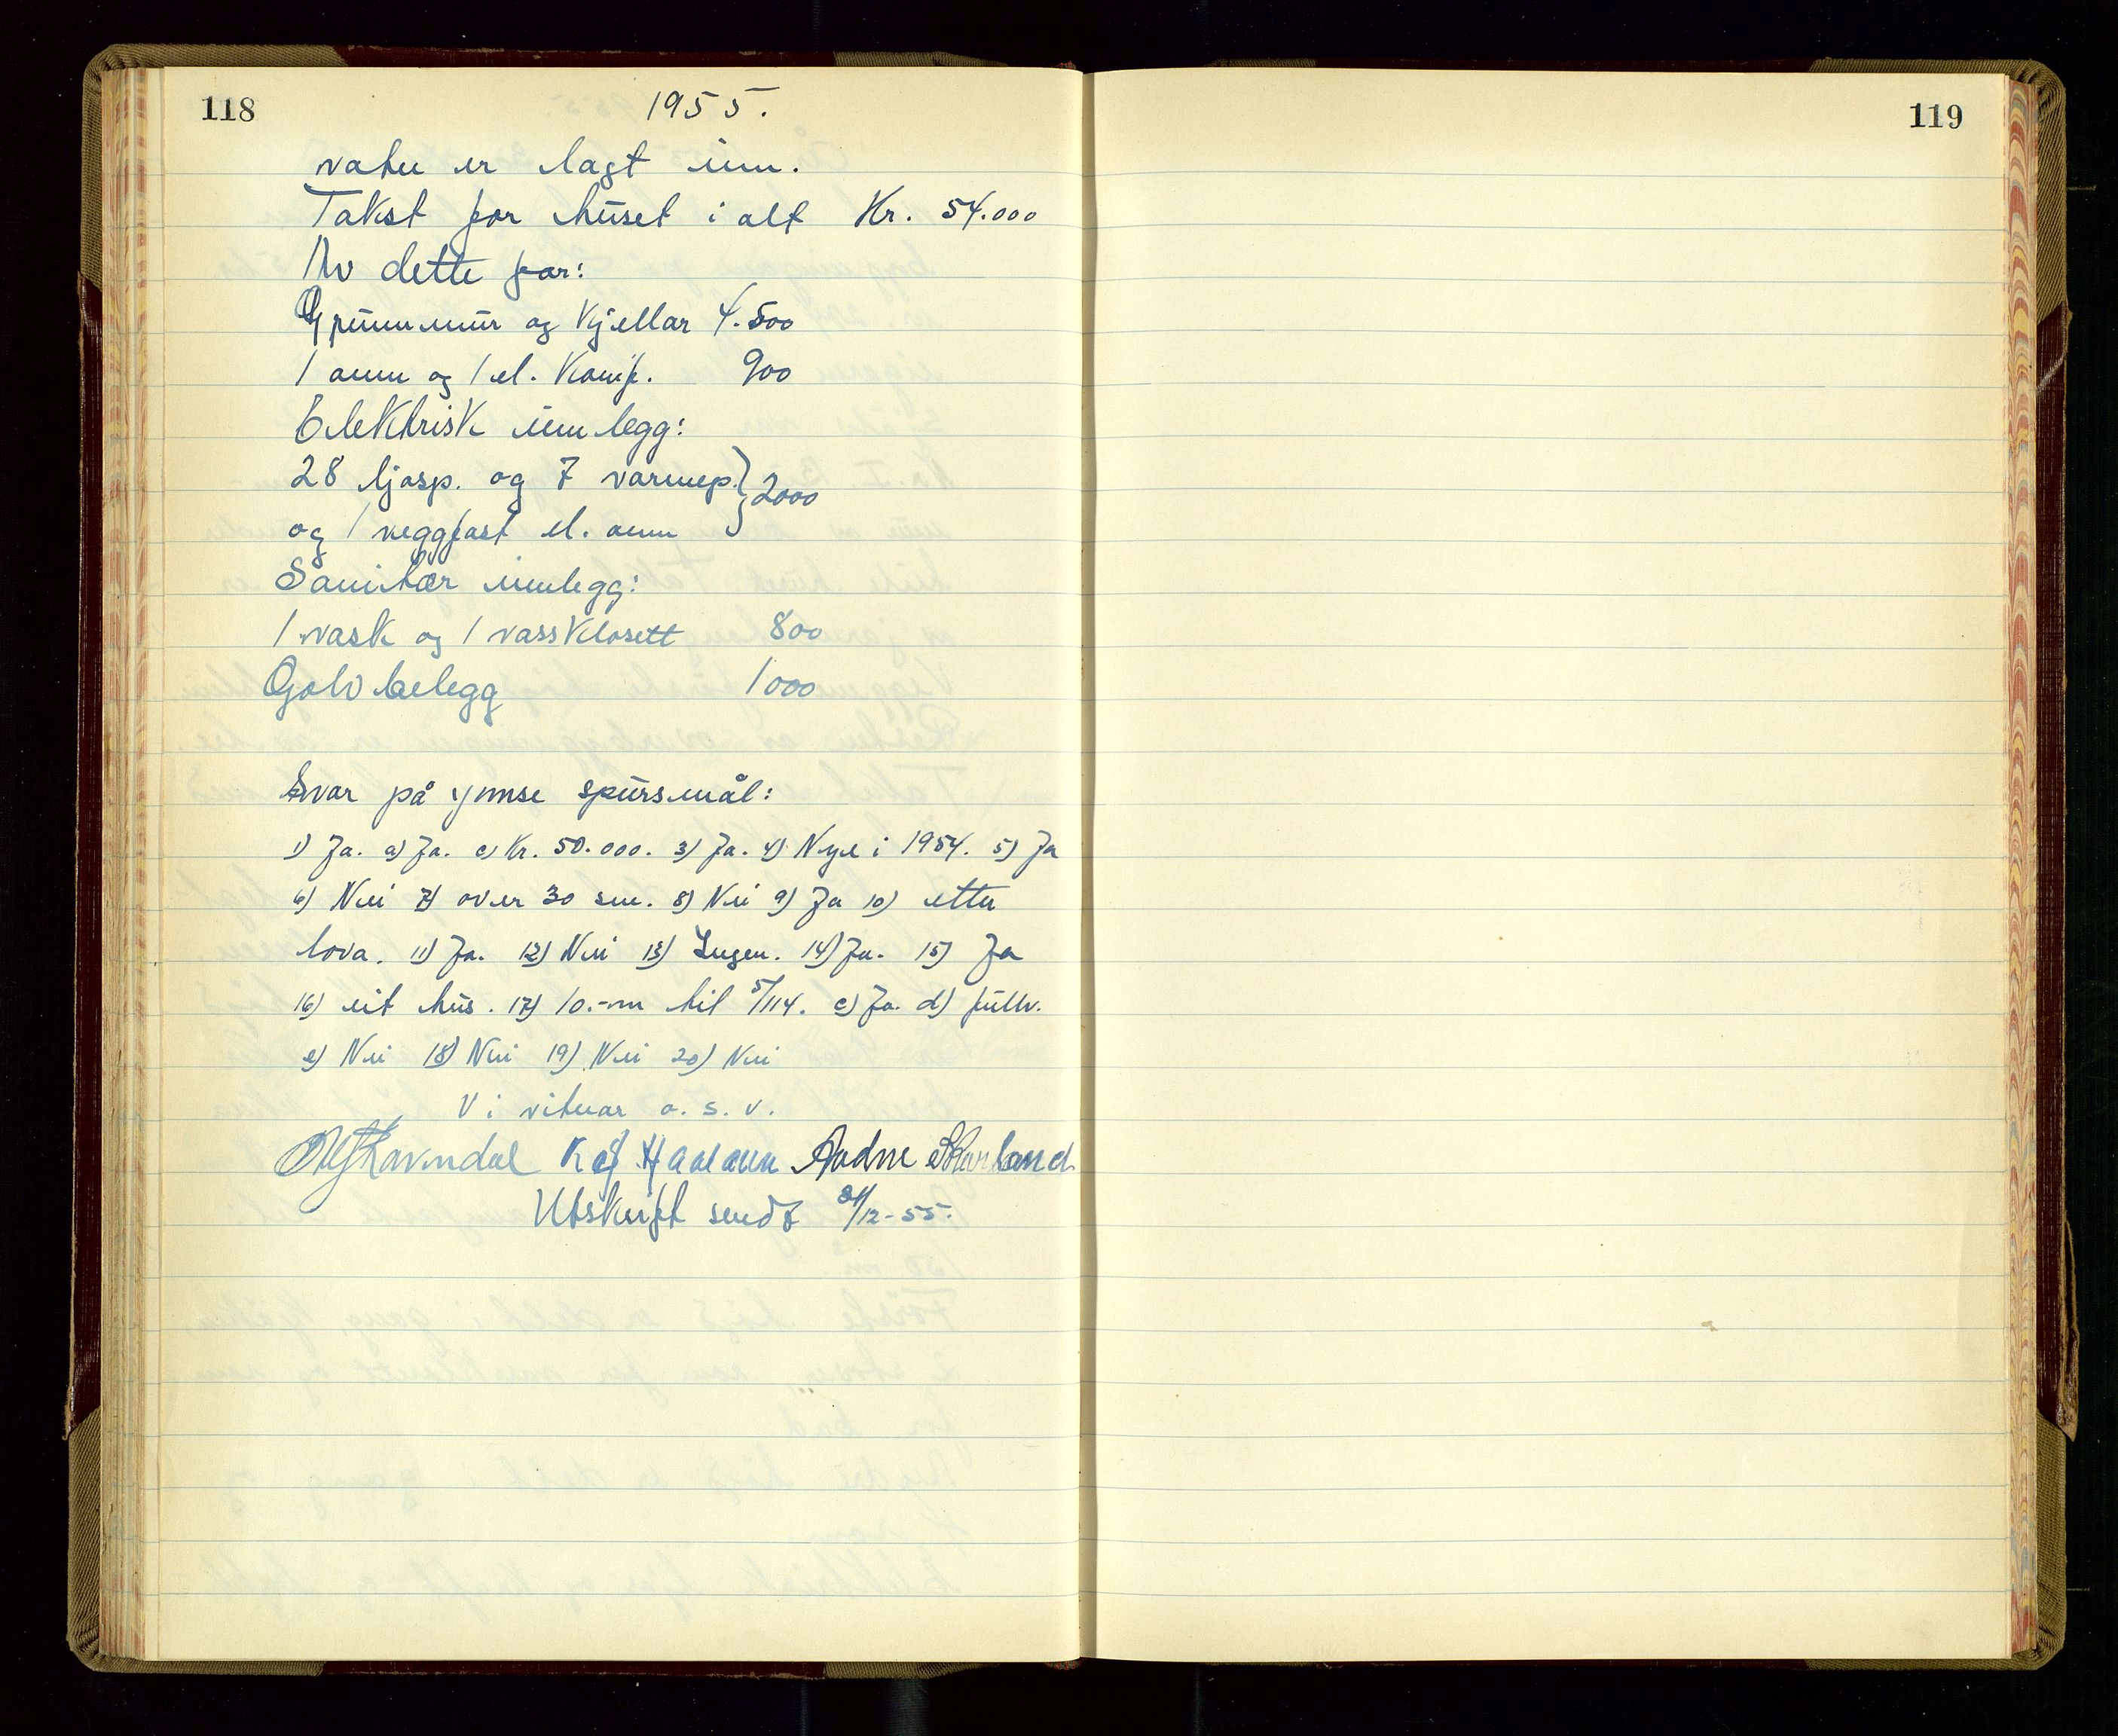 118
1955.
vatn er lagt inn.
Takst for huset i alt Kr. 54.000
Av dette for:
Grunnmur og Kjellar 4.500
1 omn og 1 el. Kamf. 900
Elektrisk innlegg:
28 ljosp. og 7 varmep. } 2000
og 1 veggfast el. omn
Sanitær innlegg:
1 vask og 1 vassklosett 800
Golvbelegg 1000
Svar på ymse spursmål:
1) Ja. a) Ja. c) Kr. 50.000. 3) Ja. 4) Nye i 1954. 5) Ja
6) Nei 7) over 30 sm. 8) Nei 9) Ja 10) etter
lova. 11) Ja. 12) Nei 13) Ingen. 14) Ja. 15) Ja
16) eit hus. 17) 10.-m til 5/114. c) Ja. d) fullv.
e) Nei 18) Nei 19) Nei 20) Nei
Vi vitnar o.s.v.
Ravndal Audne
Utskrift sendt /12-55.
119